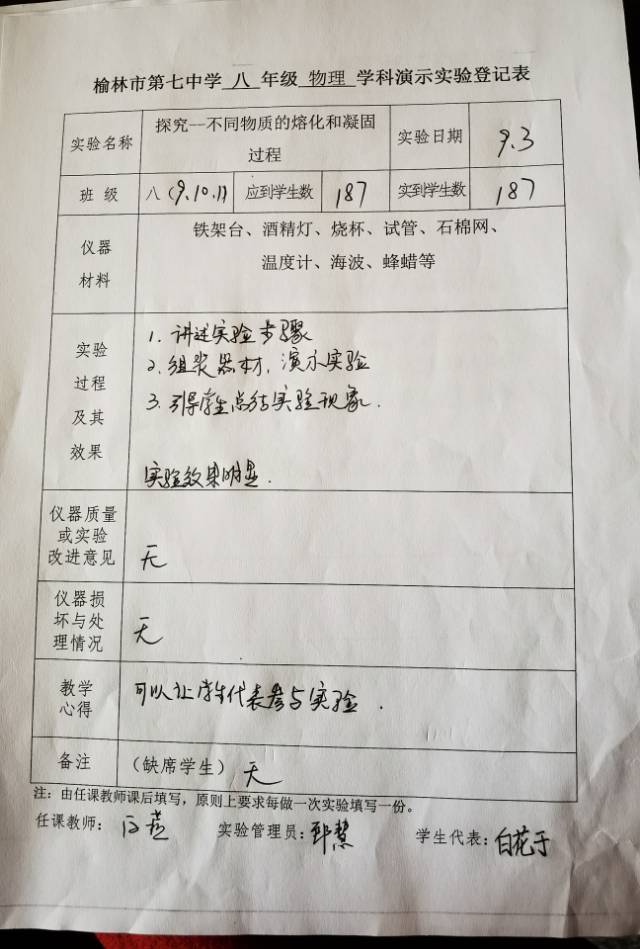 榆林市第七中学 八 年级 物理 学科演示实验登记表
实验名称
探究--不同物质的熔化和凝固
过程
实验日期
9.3
班 级
八（9.10.11）
应到学生数
187
实到学生数
187
仪器
材料
铁架台、酒精灯、烧杯、试管、石棉网、
温度计、海波、蜂蜡等
实验
过程
及其
效果
1. 讲述实验步骤
2. 组装器材，演示实验
3. 引导学生总结实验现象.
实验效果明显.
仪器质量
或实验
改进意见
无
仪器损
坏与处
理情况
无
教学
心得
可以让学生代表参与实验.
备注
（缺席学生）无
注：由任课教师课后填写，原则上要求每做一次实验填写一份。
任课教师：
实验管理员：
学生代表：白花于